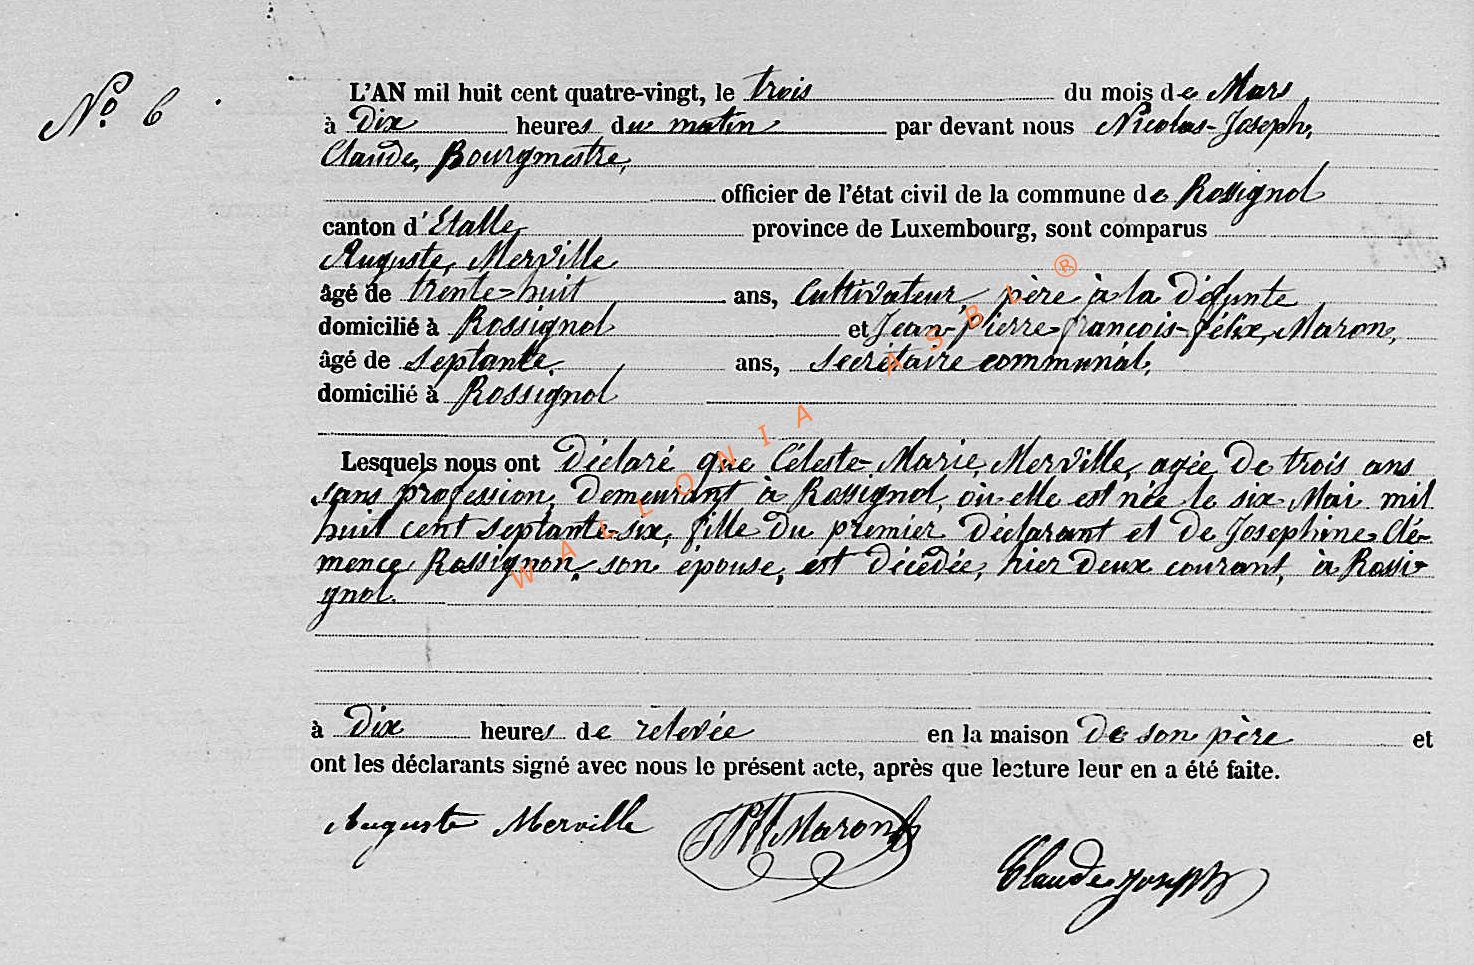 N.º 6
L'AN mil huit cent quatre-vingt, le trois du mois de Mars
à Dix heures du matin par devant nous Nicolas-Joseph,
Claude, Bourgmestre,
officier de l'état civil de la commune de Rossignol
canton d'Etalle province de Luxembourg, sont comparus
Auguste, Merville
âgé de trente-huit ans, Cultivateur, père à la défunte
domicilié à Rossignol et Jean-Pierre-François-Félix, Maron,
âgé de septante. ans, Secrétaire communal,
domicilié à Rossignol
Lesquels nous ont Déclaré que Céleste-Marie, Merville, agée De trois ans
sans profession, Demeurant à Rossignol, où elle est née le six Mai mil
huit cent septante-six, fille Du premier Déclarant et De Josephine-Clé-
mence, Rossignon, son épouse, est Décédée, hier Deux courant, à Rossi-
gnol.
à Dix heures de relevée en la maison De son père et
ont les déclarants signé avec nous le présent acte, après que lecture leur en a été faite.
Auguste Merville Maron
Claude Joseph
WALLONIA ASBL ®